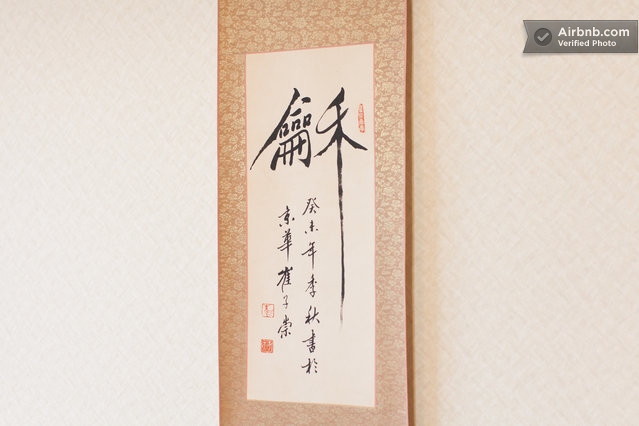 龢
癸未年季秋书於
京華崔子崇
Airbnb.com
Verified Photo